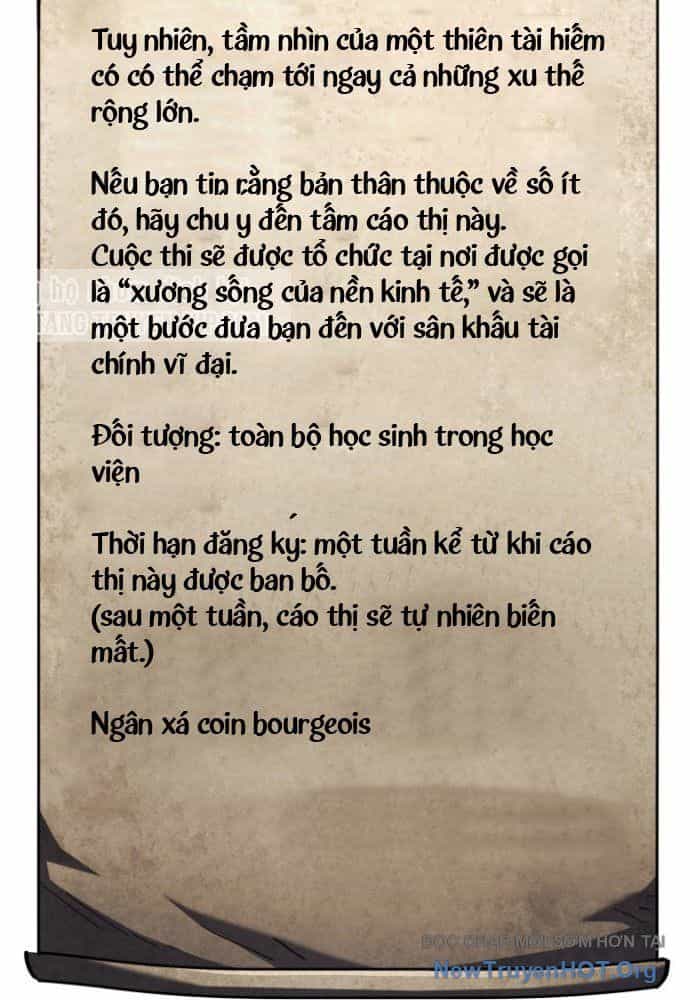 Tuy nhiên, tầm nhìn của một thiên tài hiếm
có có thể chạm tới ngay cả những xu thế
rộng lớn.
Nếu bạn tin rằng bản thân thuộc về số ít
đó, hãy chu y đến tấm cáo thị này.
Cuộc thi sẽ được tổ chức tại nơi được gọi
là “xương sống của nền kinh tế,” và sẽ là
một bước đưa bạn đến với sân khấu tài
chính vĩ đại.
Đối tượng: toàn bộ học sinh trong học
viện
Thời hạn đăng ky: một tuần kể từ khi cáo
thị này được ban bố.
(sau một tuần, cáo thị sẽ tự nhiên biến
mất.)
Ngân xá coin bourgeois
ĐỌC CHAP MỚI SỚM HƠN TẠI
NowTruyenHOT.Org